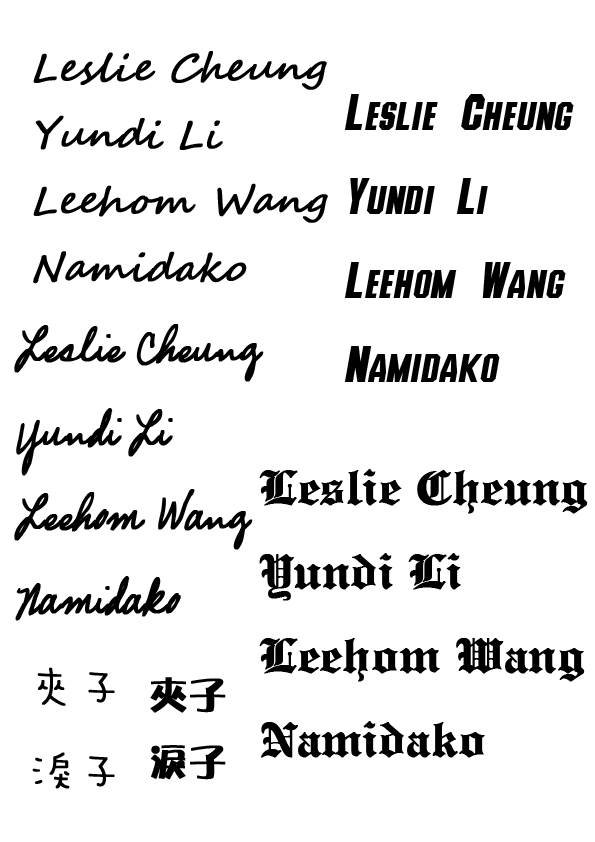 Leslie Cheung
Yundi Li
Leehom Wang
Namidako
Leslie Cheung
Yundi Li
Leehom Wang
Namidako
Leslie Cheung
Yundi Li
Leehom Wang
Namidako
Leslie Cheung
Yundi Li
Leehom Wang
Namidako
夾子 夾子
淚子 淚子